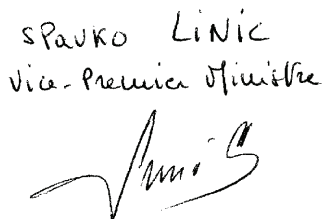 SPavKO LiNiC
Vice-Premier Ministre